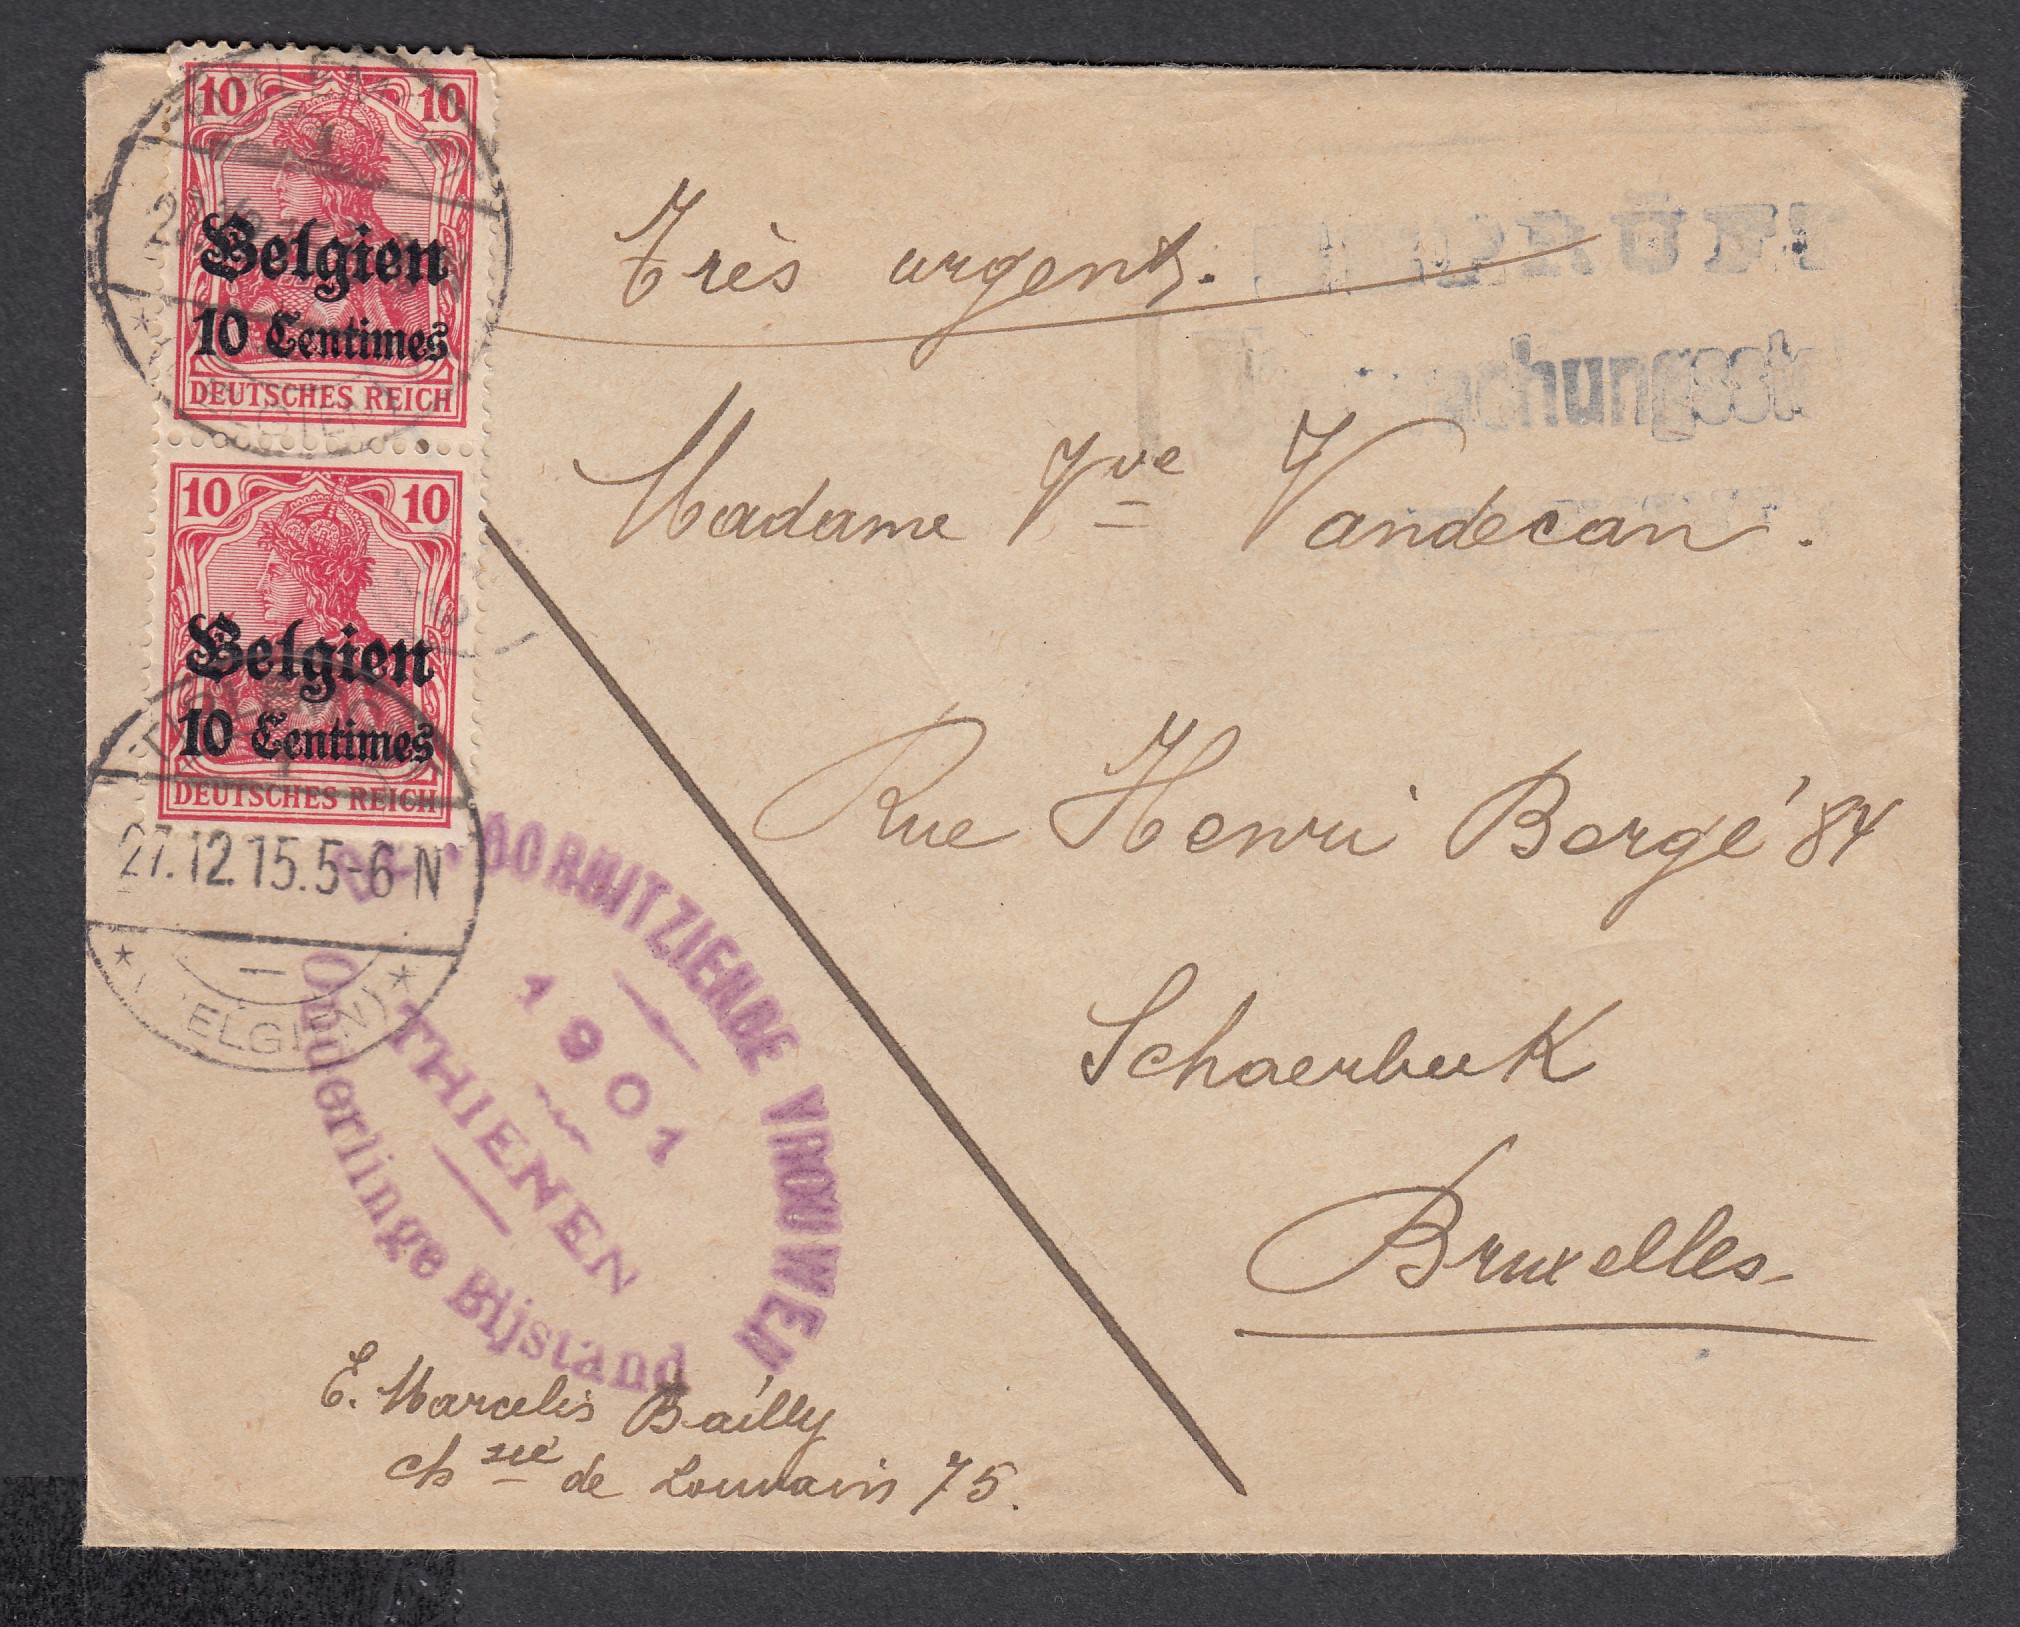 10 10
Belgien
10 Centimes
DEUTSCHES REICH
10 10
Belgien
10 Centimes
DEUTSCHES REICH
27.12.15.5-6 N
Très urgent.
Madame Vve Vandecan.
Rue Henri Bergé 84
Schaerbeek
Bruxelles
VOORUITZIENDE VROUWEN
1901
THIENEN
Onderlinge Bijstand
E. Marcelis Bailly
chssée de Louvain 75.